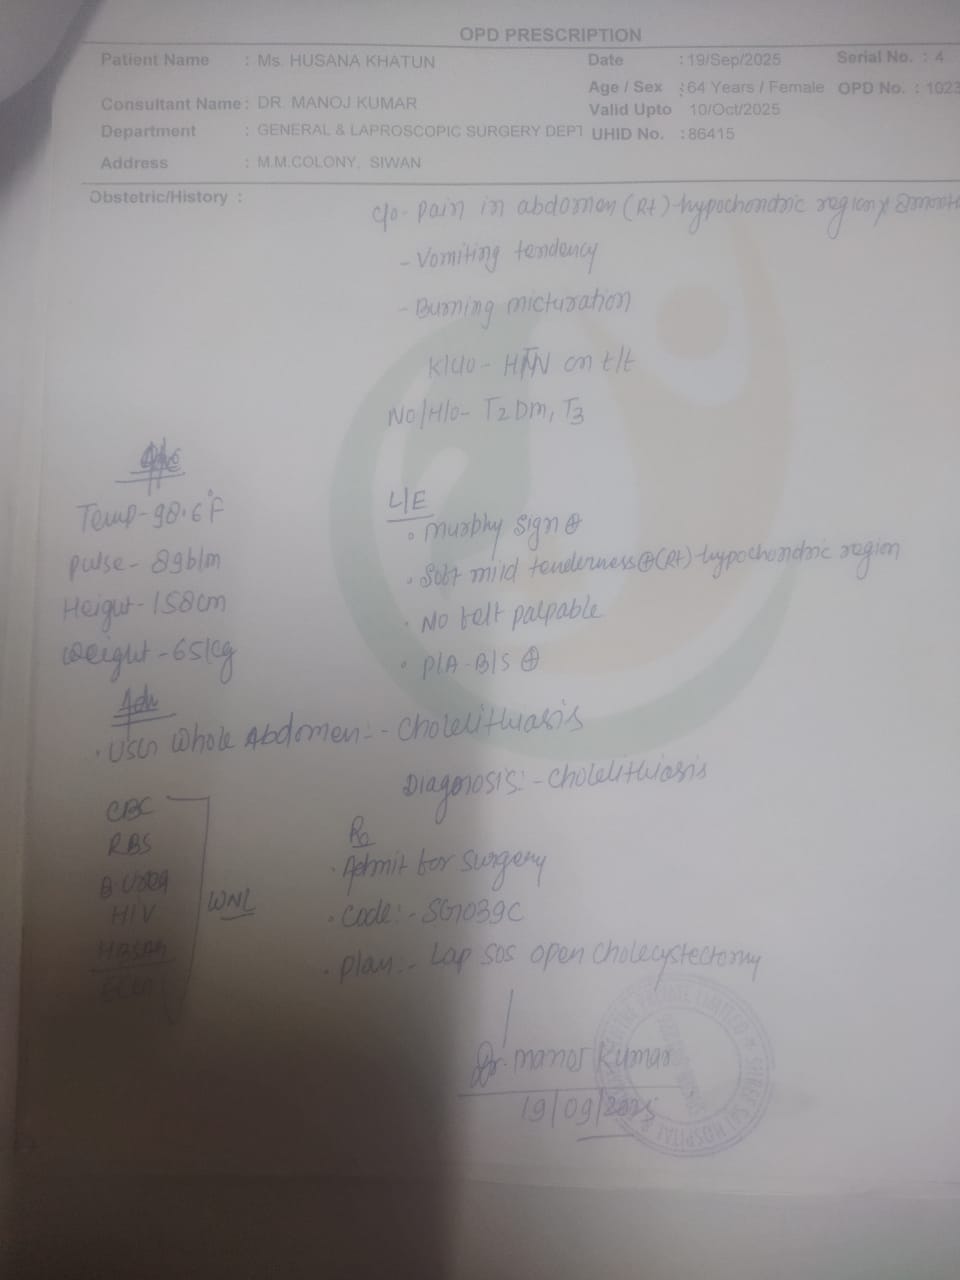 OPD PRESCRIPTION
Patient Name : Ms. HUSANA KHATUN
Date : 19/Sep/2025
Serial No. : 4
Age / Sex : 64 Years / Female
OPD No. : 1023
Consultant Name : DR. MANOJ KUMAR
Valid Upto 10/Oct/2025
Department : GENERAL & LAPROSCOPIC SURGERY DEPT
UHID No. : 86415
Address : M.M.COLONY, SIWAN
Obstetric/History :
C/o - Pain in abdomen (Rt) - hypochondric region x
- Vomiting tendency
- Burning micturation
K/C/o - HTN on t/t
No/H/o - T2DM, T3
Temp - 98.6°F
Pulse - 89b/m
Height - 158cm
Weight - 65kg
L/E
• Murphy Sign ⊕
• Soft mild tenderness ⊕ (Rt) - hypochondric region
• No felt palpable
• P/A - B/S ⊕
Adv
• USG Whole Abdomen :- Cholelithiasis
Diagnosis :- Cholelithiasis
CBC
RBS
B. Urea
HIV
HBSAG
WNL
Rx
• Admit for surgery
• Code :- SG1039C
• Plan :- Lap SOS open cholecystectomy
Dr. Manoj Kumar
19/09/2025